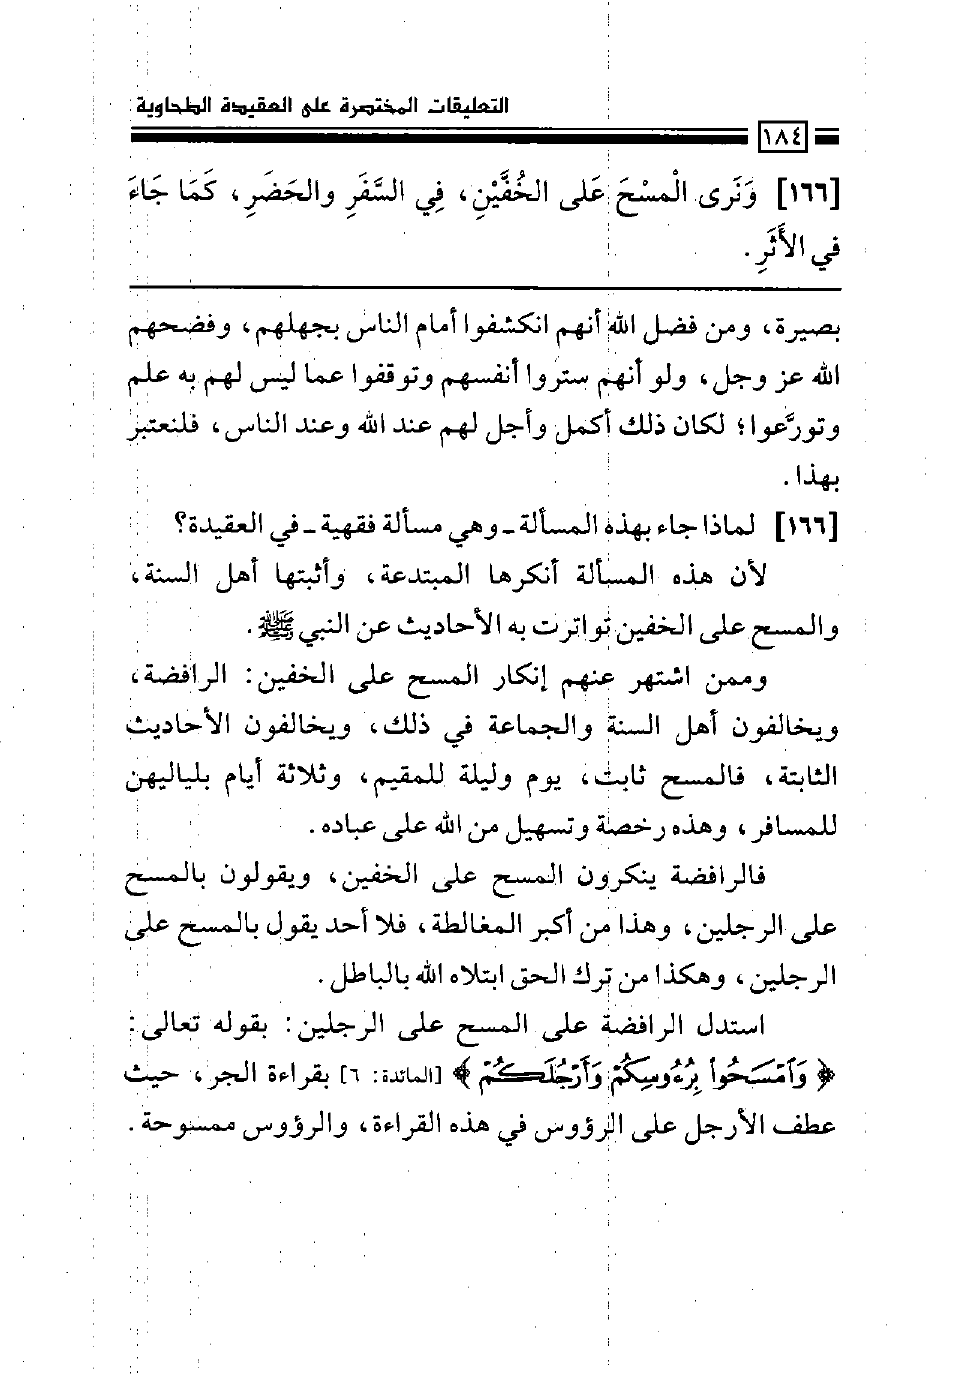 التعليقات المختصرة على العقيدة الطحاوية
١٨٤
[١٦٦] وَنَرى الْمسْحَ عَلى الخُفَّيْنِ، فِي السَّفَرِ والحَضَرِ، كَمَا جَاءَ
في الأَثَرِ.
بصيرة، ومن فضل الله أنهم انكشفوا أمام الناس بجهلهم، وفضحهم
الله عز وجل، ولو أنهم ستروا أنفسهم وتوقفوا عما ليس لهم به علم
وتورَّعوا؛ لكان ذلك أكمل وأجل لهم عند الله وعند الناس، فلنعتبر
بهذا.
[١٦٦] لماذا جاء بهذه المسألة ـ وهي مسألة فقهية ـ في العقيدة؟
لأن هذه المسألة أنكرها المبتدعة، وأثبتها أهل السنة،
والمسح على الخفين تواترت به الأحاديث عن النبي ﷺ.
وممن اشتهر عنهم إنكار المسح على الخفين: الرافضة،
ويخالفون أهل السنة والجماعة في ذلك، ويخالفون الأحاديث
الثابتة، فالمسح ثابت، يوم وليلة للمقيم، وثلاثة أيام بلياليهن
للمسافر، وهذه رخصة وتسهيل من الله على عباده.
فالرافضة ينكرون المسح على الخفين، ويقولون بالمسح
على الرجلين، وهذا من أكبر المغالطة، فلا أحد يقول بالمسح على
الرجلين، وهكذا من ترك الحق ابتلاه الله بالباطل.
استدل الرافضة على المسح على الرجلين: بقوله تعالى:
﴿وَٱمْسَحُوا۟ بِرُءُوسِكُمْ وَأَرْجُلَكُمْ﴾ [المائدة: ٦] بقراءة الجر، حيث
عطف الأرجل على الرؤوس في هذه القراءة، والرؤوس ممسوحة.